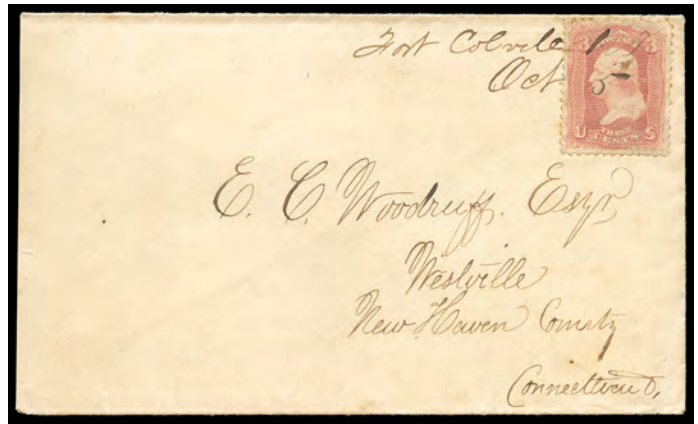 Fort Colvile
Oct 5
3 3
U THREE CENTS S
E. C. Woodruff. Esqr
Westville
New Haven County
Connecticut.